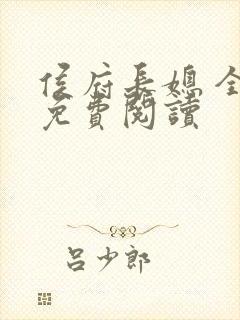 侯府長媳 全
免費閱讀
呂少郎